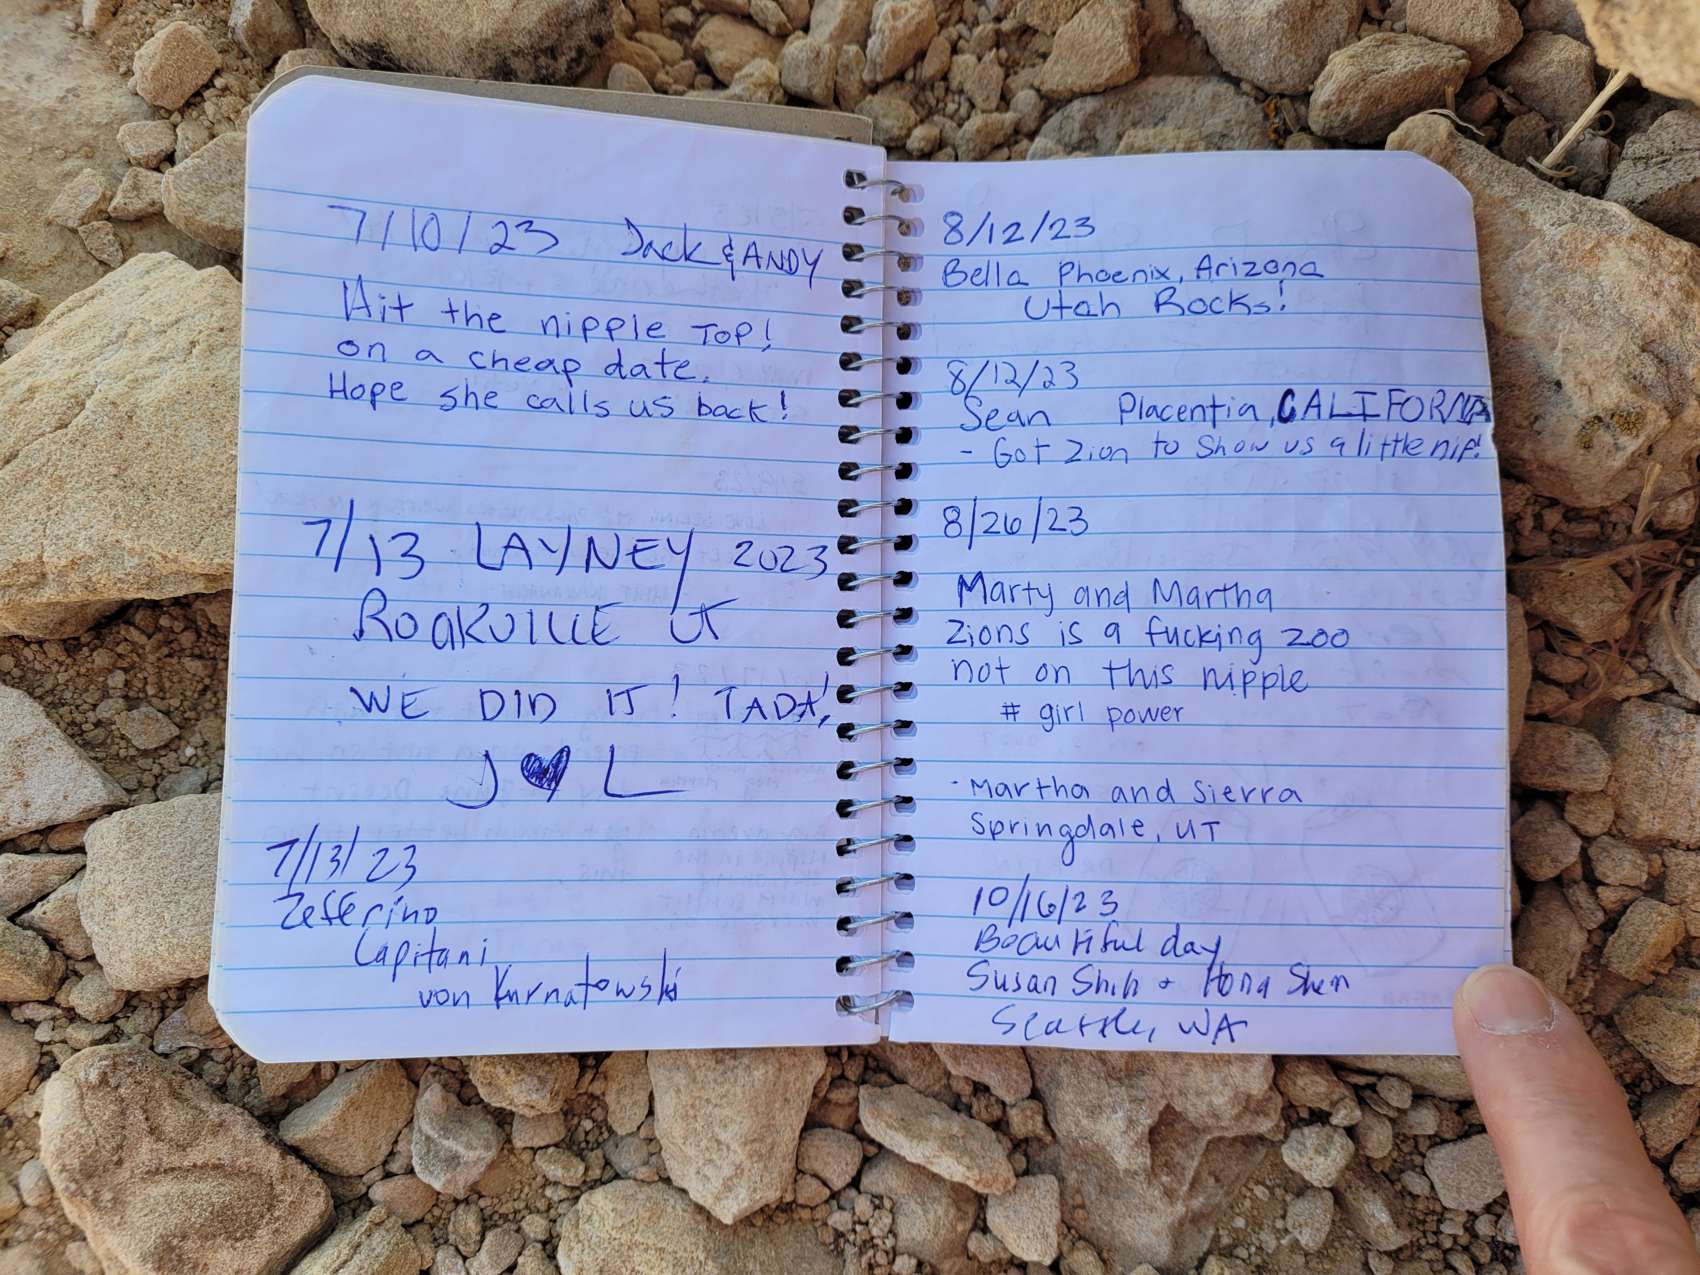 7/10/23 Jack & ANDY
Hit the nipple TOP!
on a cheap date.
Hope she calls us back!
7/13 LAYNEY 2023
ROCKVILLE UT
WE DID IT! TADA!
J ♥ L
7/13/23
Zefferino
Capitani
von Kurnatowski
8/12/23
Bella Phoenix, Arizona
Utah Rocks!
8/12/23
Sean Placentia, CALIFORNIA
- Got Zion to show us a little nip!
8/26/23
Marty and Martha
Zions is a fucking zoo
not on this nipple
# girl power
- Martha and Sierra
Springdale, UT
10/16/23
Beautiful day
Susan Shih + Hong Shen
Seattle, WA